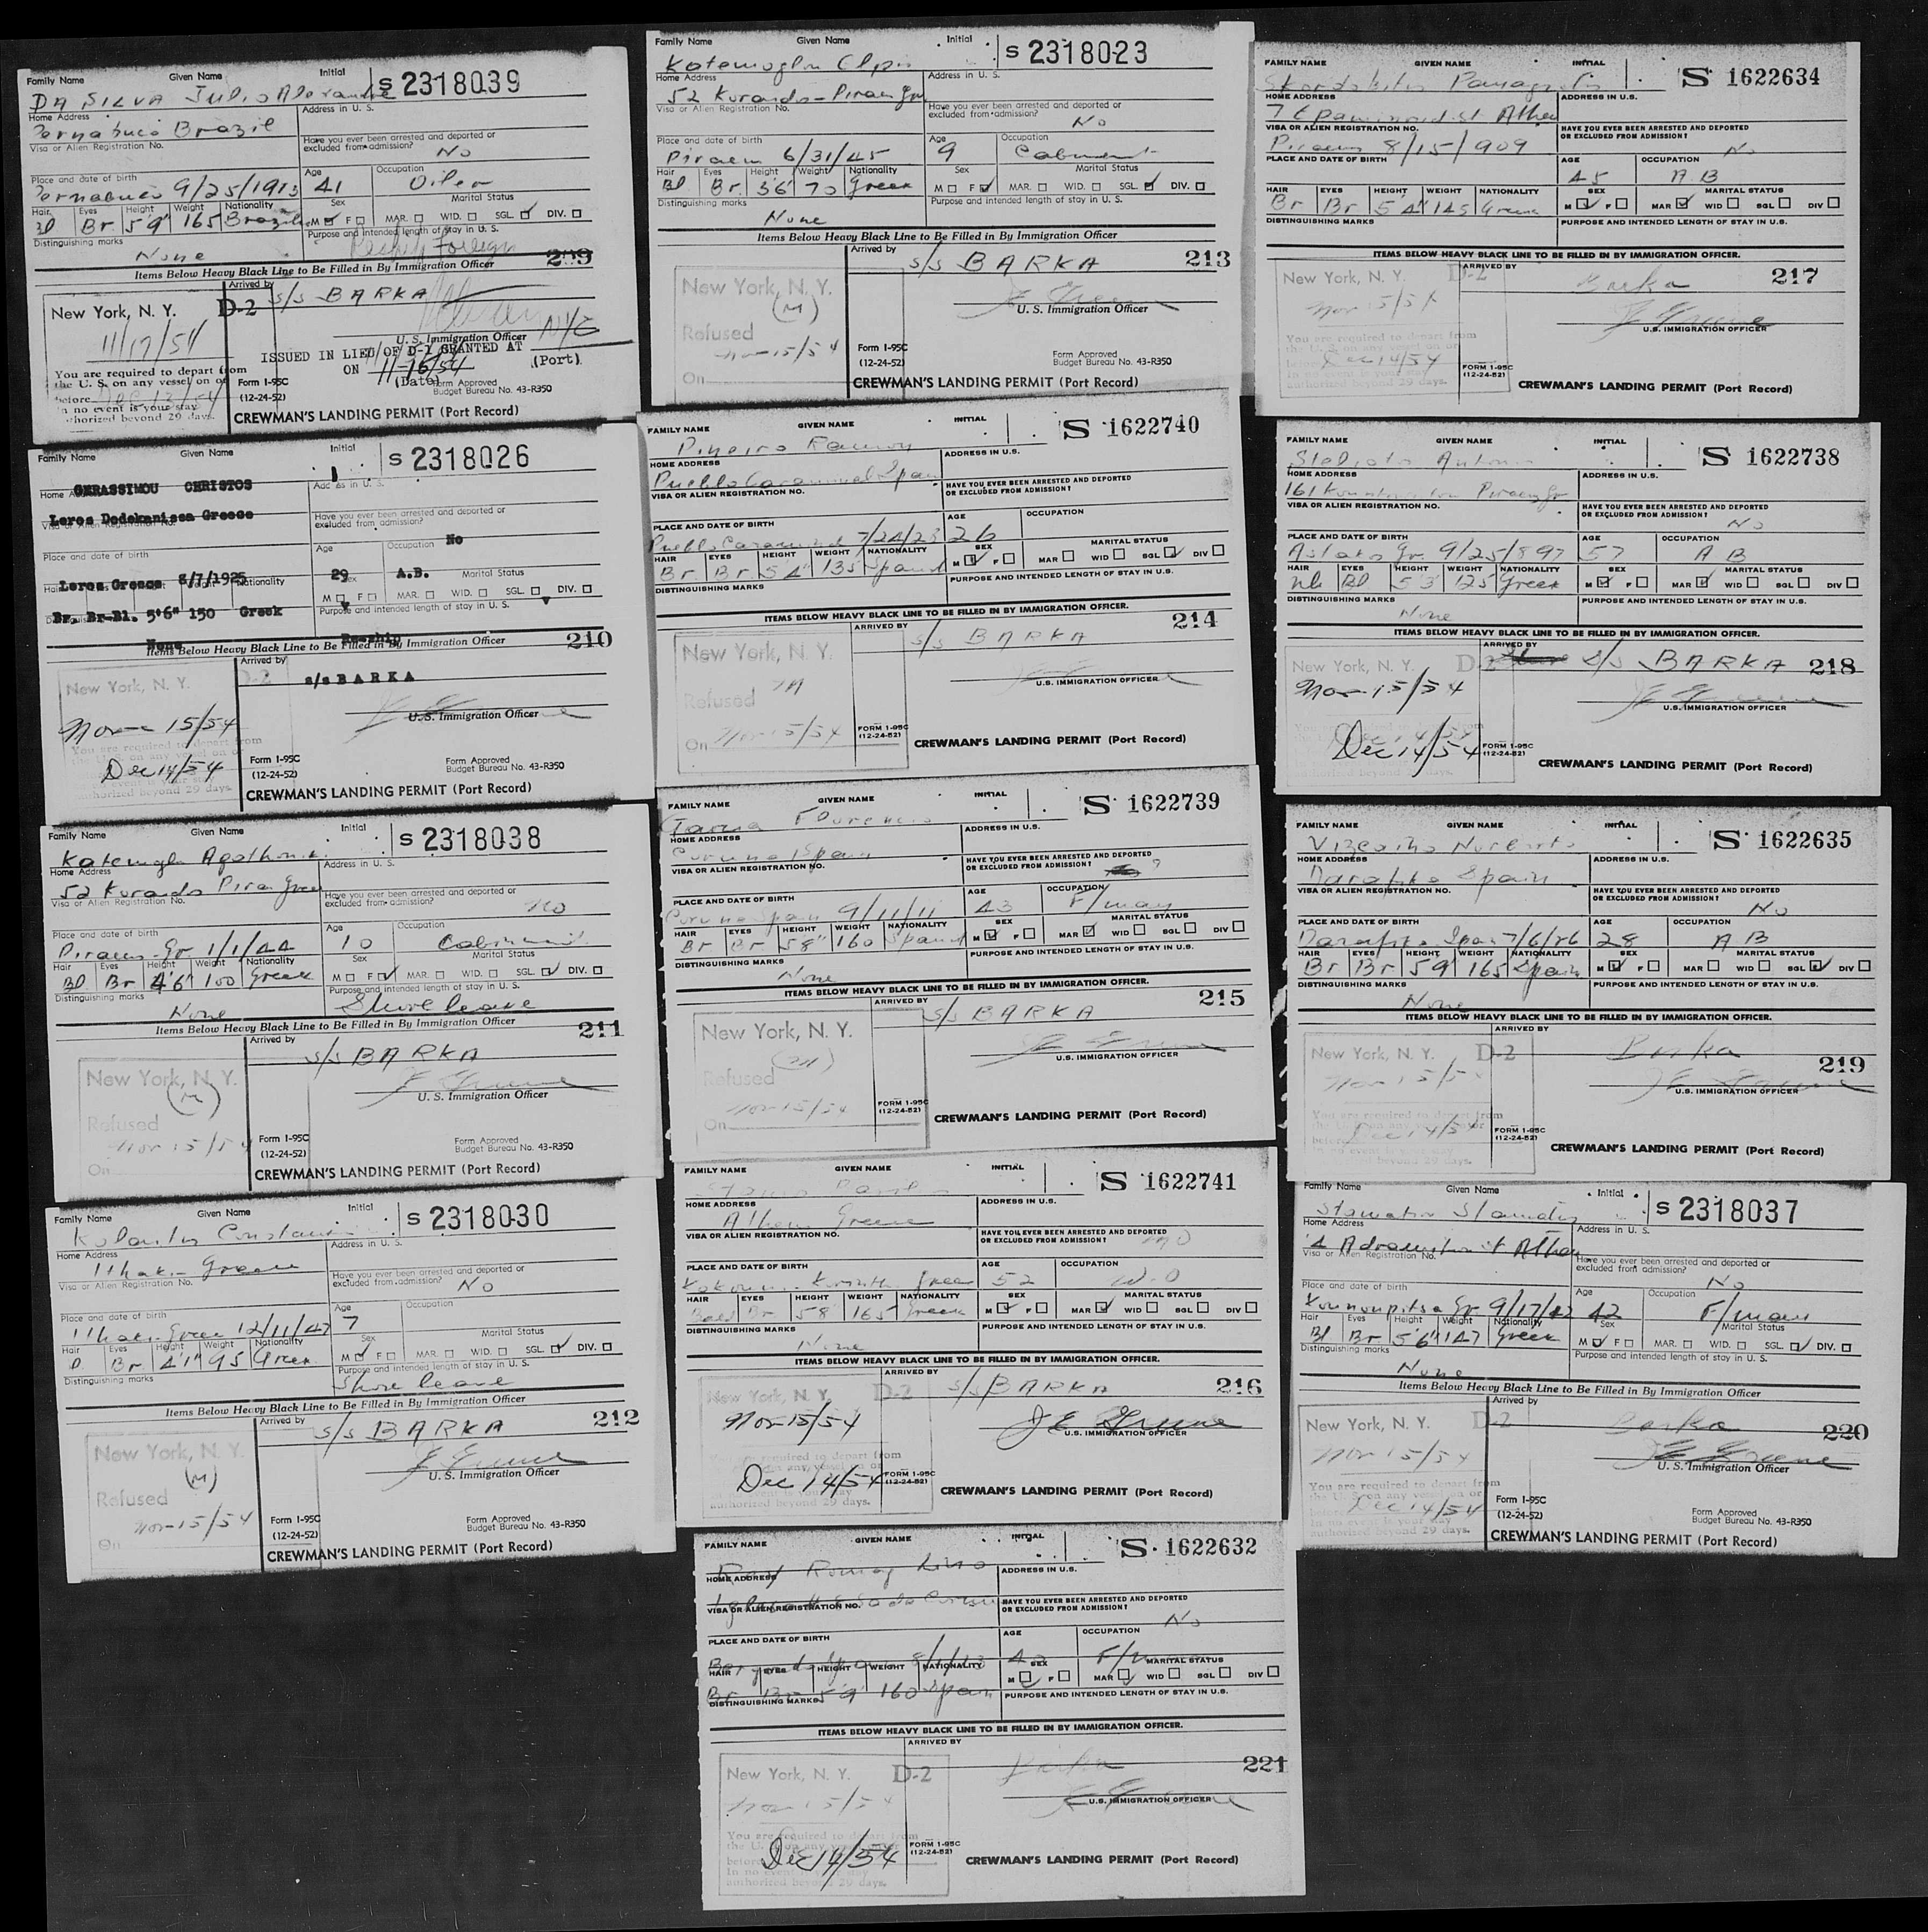 Family Name Given Name Initial
S 2318039
DA SILVA Julio Alexandre
Home Address Address in U. S.
Pernabuco Brazil
Visa or Alien Registration No.
Have you ever been arrested and deported or
excluded from admission?
No
Place and date of birth Age Occupation
Pernabuco 9/25/1913 41 Oiler
Hair Eyes Height Weight Nationality Sex Marital Status
Bl Br 5'9" 165 M F MAR. WID. SGL. DIV.
Distinguishing marks Purpose and intended length of stay in U. S.
None Reship Foreign
Items Below Heavy Black Line to Be Filled in By Immigration Officer
209
Arrived by
New York, N. Y. D-2 s/s BARKA
11/17/54
U. S. Immigration Officer
ISSUED IN LIEU OF D-1 GRANTED AT NYC
(Port)
ON 11-16/54
(Date)
You are required to depart from
the U. S. on any vessel on or
before Dec 13/54
In no event is your stay
authorized beyond 29 days.
Form I-95C
(12-24-52)
Form Approved
Budget Bureau No. 43-R350
CREWMAN'S LANDING PERMIT (Port Record)
Family Name Given Name Initial
S 2318026
GERASSIMOU CHRISTOS
Leros Dodekanissa Greece
Visa or Alien Registration No.
Have you ever been arrested and deported or
excluded from admission?
No
Place and date of birth Age Occupation
Leros Greece 8/7/1925 29 A.B.
Marital Status
M F MAR. WID. SGL. DIV.
Br. Br-Bl. 5'6" 150 Greek
Purpose and intended length of stay in U. S.
None Re-ship
Items Below Heavy Black Line to Be Filled in By Immigration Officer
210
Arrived by
New York, N. Y. D-2 s/s BARKA
Nov 15/54
U. S. Immigration Officer
You are required to depart from
Dec 14/54
authorized beyond 29 days.
Form I-95C
(12-24-52)
Form Approved
Budget Bureau No. 43-R350
CREWMAN'S LANDING PERMIT (Port Record)
Family Name Given Name Initial
S 2318038
Home Address Address in U. S.
52
Visa or Alien Registration No.
Have you ever been arrested and deported or
excluded from admission?
No
Place and date of birth Age Occupation
Piraeus Gr 1/1/44 10
Hair Eyes Height Weight Nationality Sex Marital Status
Bl. Br 4'6" 100 Greek M F MAR. WID. SGL. DIV.
Distinguishing marks Purpose and intended length of stay in U. S.
None Shore leave
Items Below Heavy Black Line to Be Filled in By Immigration Officer
211
Arrived by
s/s BARKA
New York, N. Y.
(M)
U. S. Immigration Officer
Refused
Nov 15/54
On
Form I-95C
(12-24-52)
Form Approved
Budget Bureau No. 43-R350
CREWMAN'S LANDING PERMIT (Port Record)
Family Name Given Name Initial
S 2318030
Home Address Address in U. S.
Ithaki Greece
Visa or Alien Registration No.
Have you ever been arrested and deported or
excluded from admission?
No
Place and date of birth Age Occupation
Ithaki Greece 12/11/47 7
Hair Eyes Height Weight Nationality Sex Marital Status
Br 4'1" 95 Greek M F MAR. WID. SGL. DIV.
Distinguishing marks Purpose and intended length of stay in U. S.
Shore leave
Items Below Heavy Black Line to Be Filled in By Immigration Officer
212
Arrived by
s/s BARKA
New York, N. Y.
(M)
U. S. Immigration Officer
Refused
Nov 15/54
On
Form I-95C
(12-24-52)
Form Approved
Budget Bureau No. 43-R350
CREWMAN'S LANDING PERMIT (Port Record)
Family Name Given Name Initial
S 2318023
Home Address Address in U. S.
52
Visa or Alien Registration No.
Have you ever been arrested and deported or
excluded from admission?
No
Place and date of birth Age Occupation
Piraeus 6/31/45 9
Hair Eyes Height Weight Nationality Sex Marital Status
Bl. Br. 3'6" 70 Greek M F MAR. WID. SGL. DIV.
Distinguishing marks Purpose and intended length of stay in U. S.
None
Items Below Heavy Black Line to Be Filled in By Immigration Officer
213
Arrived by
s/s BARKA
New York, N. Y.
(M)
U. S. Immigration Officer
Refused
Nov 15/54
On
Form I-95C
(12-24-52)
Form Approved
Budget Bureau No. 43-R350
CREWMAN'S LANDING PERMIT (Port Record)
FAMILY NAME GIVEN NAME INITIAL
S 1622740
Pineiro Ramon
HOME ADDRESS ADDRESS IN U.S.
Spain
VISA OR ALIEN REGISTRATION NO.
HAVE YOU EVER BEEN ARRESTED AND DEPORTED
OR EXCLUDED FROM ADMISSION?
PLACE AND DATE OF BIRTH AGE OCCUPATION
7/24/28 26
HAIR EYES HEIGHT WEIGHT NATIONALITY SEX MARITAL STATUS
Br. Br 5'4" 135 M F MAR WID SGL DIV
DISTINGUISHING MARKS PURPOSE AND INTENDED LENGTH OF STAY IN U.S.
ITEMS BELOW HEAVY BLACK LINE TO BE FILLED IN BY IMMIGRATION OFFICER.
214
ARRIVED BY
s/s BARKA
New York, N. Y.
M
U.S. IMMIGRATION OFFICER
Refused
On Nov 15/54
FORM I-95C
(12-24-52)
CREWMAN'S LANDING PERMIT (Port Record)
FAMILY NAME GIVEN NAME INITIAL
S 1622739
HOME ADDRESS ADDRESS IN U.S.
Coruna Spain
VISA OR ALIEN REGISTRATION NO.
HAVE YOU EVER BEEN ARRESTED AND DEPORTED
OR EXCLUDED FROM ADMISSION?
PLACE AND DATE OF BIRTH AGE OCCUPATION
Coruna Spain 9/11/11 43 F/man
HAIR EYES HEIGHT WEIGHT NATIONALITY SEX MARITAL STATUS
Br Br 5'8" 160 M F MAR WID SGL DIV
DISTINGUISHING MARKS PURPOSE AND INTENDED LENGTH OF STAY IN U.S.
None
ITEMS BELOW HEAVY BLACK LINE TO BE FILLED IN BY IMMIGRATION OFFICER.
215
ARRIVED BY
s/s BARKA
New York, N. Y.
(M)
U.S. IMMIGRATION OFFICER
Refused
Nov 15/54
On
FORM I-95C
(12-24-52)
CREWMAN'S LANDING PERMIT (Port Record)
FAMILY NAME GIVEN NAME INITIAL
S 1622741
HOME ADDRESS ADDRESS IN U.S.
Athens Greece
VISA OR ALIEN REGISTRATION NO.
HAVE YOU EVER BEEN ARRESTED AND DEPORTED
OR EXCLUDED FROM ADMISSION?
NO
PLACE AND DATE OF BIRTH AGE OCCUPATION
Greece 52 W.O
HAIR EYES HEIGHT WEIGHT NATIONALITY SEX MARITAL STATUS
Bald Br 5 8 165 Greek M F MAR WID SGL DIV
DISTINGUISHING MARKS PURPOSE AND INTENDED LENGTH OF STAY IN U.S.
None
ITEMS BELOW HEAVY BLACK LINE TO BE FILLED IN BY IMMIGRATION OFFICER.
216
ARRIVED BY
New York, N. Y. D-2 s/s BARKA
Nov 15/54
J E Greene
U.S. IMMIGRATION OFFICER
Dec 14/54
authorized beyond 29 days.
FORM I-95C
(12-24-52)
CREWMAN'S LANDING PERMIT (Port Record)
FAMILY NAME GIVEN NAME INITIAL
S 1622632
HOME ADDRESS ADDRESS IN U.S.
VISA OR ALIEN REGISTRATION NO.
HAVE YOU EVER BEEN ARRESTED AND DEPORTED
OR EXCLUDED FROM ADMISSION?
No
PLACE AND DATE OF BIRTH AGE OCCUPATION
HAIR EYES HEIGHT WEIGHT NATIONALITY SEX MARITAL STATUS
M F MAR WID SGL DIV
Br Br 5'9" 160 Spain
DISTINGUISHING MARKS PURPOSE AND INTENDED LENGTH OF STAY IN U.S.
ITEMS BELOW HEAVY BLACK LINE TO BE FILLED IN BY IMMIGRATION OFFICER.
221
ARRIVED BY
New York, N. Y. D-2 Barka
Nov 15/54
U.S. IMMIGRATION OFFICER
You are required to depart from
Dec 14/54
authorized beyond 29 days.
FORM I-95C
(12-24-52)
CREWMAN'S LANDING PERMIT (Port Record)
FAMILY NAME GIVEN NAME INITIAL
S 1622634
HOME ADDRESS ADDRESS IN U.S.
VISA OR ALIEN REGISTRATION NO.
HAVE YOU EVER BEEN ARRESTED AND DEPORTED
OR EXCLUDED FROM ADMISSION?
No
Piraeus 8/15/909
PLACE AND DATE OF BIRTH AGE OCCUPATION
45 A.B
HAIR EYES HEIGHT WEIGHT NATIONALITY SEX MARITAL STATUS
Br Br 5'4" 145 Greece M F MAR WID SGL DIV
DISTINGUISHING MARKS PURPOSE AND INTENDED LENGTH OF STAY IN U.S.
ITEMS BELOW HEAVY BLACK LINE TO BE FILLED IN BY IMMIGRATION OFFICER.
217
ARRIVED BY
New York, N. Y. D-2 Barka
Nov 15/54
U.S. IMMIGRATION OFFICER
You are required to depart from
Dec 14/54
authorized beyond 29 days.
FORM I-95C
(12-24-52)
CREWMAN'S LANDING PERMIT (Port Record)
FAMILY NAME GIVEN NAME INITIAL
S 1622738
HOME ADDRESS ADDRESS IN U.S.
161
VISA OR ALIEN REGISTRATION NO.
HAVE YOU EVER BEEN ARRESTED AND DEPORTED
OR EXCLUDED FROM ADMISSION?
No
PLACE AND DATE OF BIRTH AGE OCCUPATION
Gr. 9/25/897 57 A B
HAIR EYES HEIGHT WEIGHT NATIONALITY SEX MARITAL STATUS
Bl 5'3" 125 Greek M F MAR WID SGL DIV
DISTINGUISHING MARKS PURPOSE AND INTENDED LENGTH OF STAY IN U.S.
None
ITEMS BELOW HEAVY BLACK LINE TO BE FILLED IN BY IMMIGRATION OFFICER.
ARRIVED BY
New York, N. Y. D-2 S/S BARKA 218
Nov 15/54
U.S. IMMIGRATION OFFICER
Dec 14/54
authorized beyond 29 days.
FORM I-95C
(12-24-52)
CREWMAN'S LANDING PERMIT (Port Record)
FAMILY NAME GIVEN NAME INITIAL
S 1622635
HOME ADDRESS ADDRESS IN U.S.
Spain
VISA OR ALIEN REGISTRATION NO.
HAVE YOU EVER BEEN ARRESTED AND DEPORTED
OR EXCLUDED FROM ADMISSION?
No
PLACE AND DATE OF BIRTH AGE OCCUPATION
7/6/26 28 A B
HAIR EYES HEIGHT WEIGHT NATIONALITY SEX MARITAL STATUS
Br Br 5'9" 165 Spain M F MAR WID SGL DIV
DISTINGUISHING MARKS PURPOSE AND INTENDED LENGTH OF STAY IN U.S.
None
ITEMS BELOW HEAVY BLACK LINE TO BE FILLED IN BY IMMIGRATION OFFICER.
ARRIVED BY
New York, N. Y. D-2 Barka
219
Nov 15/54
U.S. IMMIGRATION OFFICER
You are required to depart from
Dec 14/54
beyond 29 days.
FORM I-95C
(12-24-52)
CREWMAN'S LANDING PERMIT (Port Record)
Family Name Given Name Initial
S 2318037
Home Address Address in U. S.
Visa or Alien Registration No.
Have you ever been arrested and deported or
excluded from admission?
No
Place and date of birth Age Occupation
Gr 9/17/12 42 F/man
Hair Eyes Height Weight Nationality Sex Marital Status
Bl Br 5'6" 147 Greek M F MAR. WID. SGL. DIV.
Distinguishing marks Purpose and intended length of stay in U. S.
None
Items Below Heavy Black Line to Be Filled in By Immigration Officer
Arrived by
New York, N. Y. D-2 Barka
220
Nov 15/54
U. S. Immigration Officer
You are required to depart from
the U. S. on any vessel on or
Dec 14/54
In no event is your stay
authorized beyond 29 days.
Form I-95C
(12-24-52)
Form Approved
Budget Bureau No. 43-R350
CREWMAN'S LANDING PERMIT (Port Record)